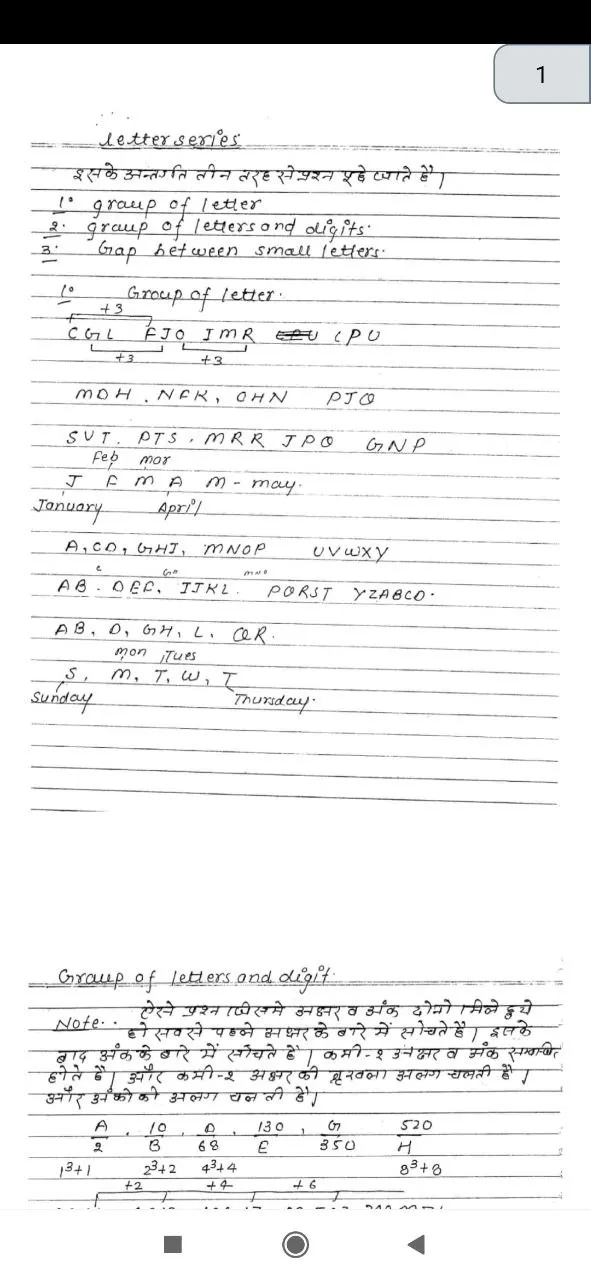 1
letter series
इसके अन्तर्गत तीन तरह से प्रश्न पूछे जाते हैं।
1. group of letter
2. group of letters and digits.
3. Gap between small letters.
1. Group of letter.
+3
CGL FJO IMR LPU
+3 +3
MDH, NFK, OHN PJQ
SVT, PTS, MRR JPQ GNP
Feb mar
J F M A M - may.
January April
A, CD, GHI, MNOP UVWXY
C GH MNO
AB. DEF, IJKL. PQRST YZABCD.
AB, D, GH, L, QR.
mon Tues
S, M, T, W, T
Sunday Thursday.
Group of letters and digit.
Note.. ऐसे प्रश्न जिसमे अक्षर व अंक दोनो मिले हुये
हो सबसे पहले अक्षर के बारे में सोचते हैं। इसके
बाद अंक के बारे में सोचते हैं। कभी-२ अक्षर व अंक सम्बन्धित
होते हैं। और कभी-२ अक्षर की श्रृंखला अलग चलती है।
और अंको की अलग चलती हैं।
A/2, 10/B, D/68, 130/E, G/350 520/H
1³+1 2³+2 4³+4 8³+8
+2 +4 +6